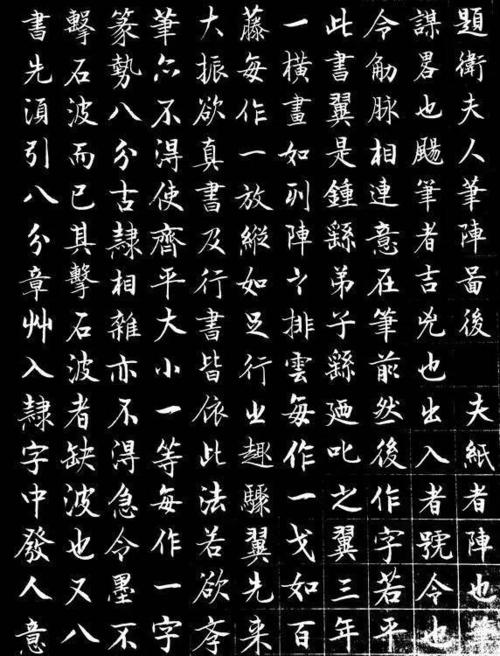 題衛夫人筆陣啚後 夫紙者陣也筆
謀畧也颺筆者吉兇也出入者號令也
令觔脉相連意在筆前然後作字若平
此書翼是鍾繇弟子繇廼叱之翼三年
一橫畫如列陣之排雲每作一戈如百
藤每作一放縱如足行之趣驟翼先来
大振欲真書及行書皆依此法若欲斈
筆亦不得使齊平大小一等每作一字
篆勢八分古隸相雜亦不得急令墨不
擊石波而已其擊石波者缺波也又八
書先須引八分章艸入隸字中發人意